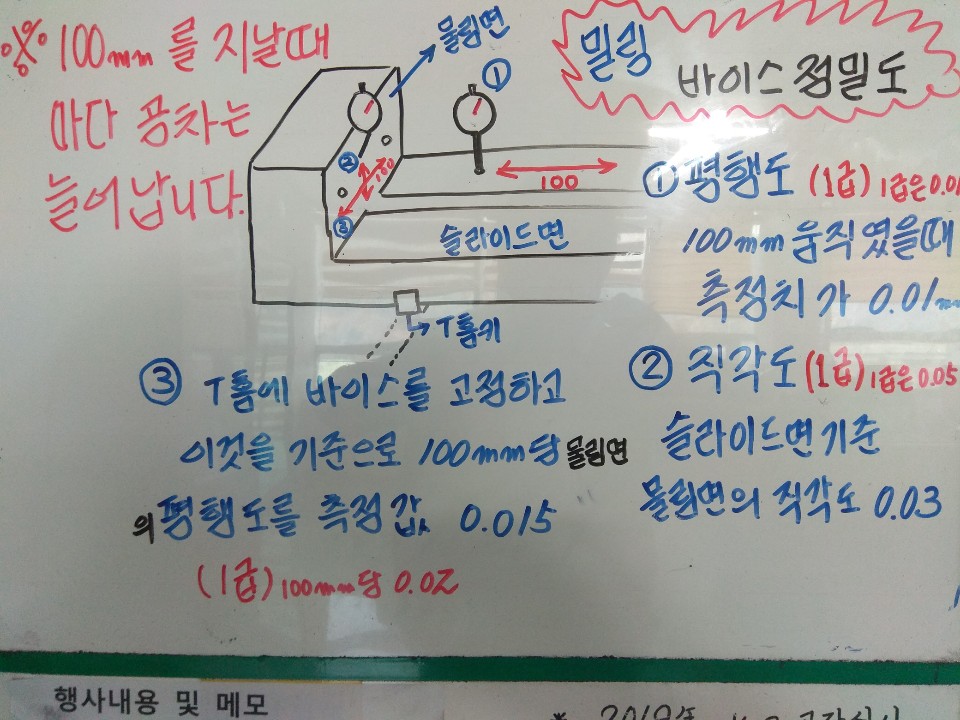 ※ 100mm 를 지날때
마다 공차는
늘어납니다.
물림면
①
밀링
바이스 정밀도
②
100
③
100
슬라이드면
T홈키
① 평행도 (1급) 1급은 0.01
100mm 움직였을때
측정치가 0.01mm
② 직각도 (1급) 1급은 0.05
슬라이드면 기준
물림면의 직각도 0.03
③ T홈에 바이스를 고정하고
이것을 기준으로 100mm당 물림면
의 평행도를 측정값 0.015
(1급) 100mm당 0.02
행사내용 및 메모
* 2019년